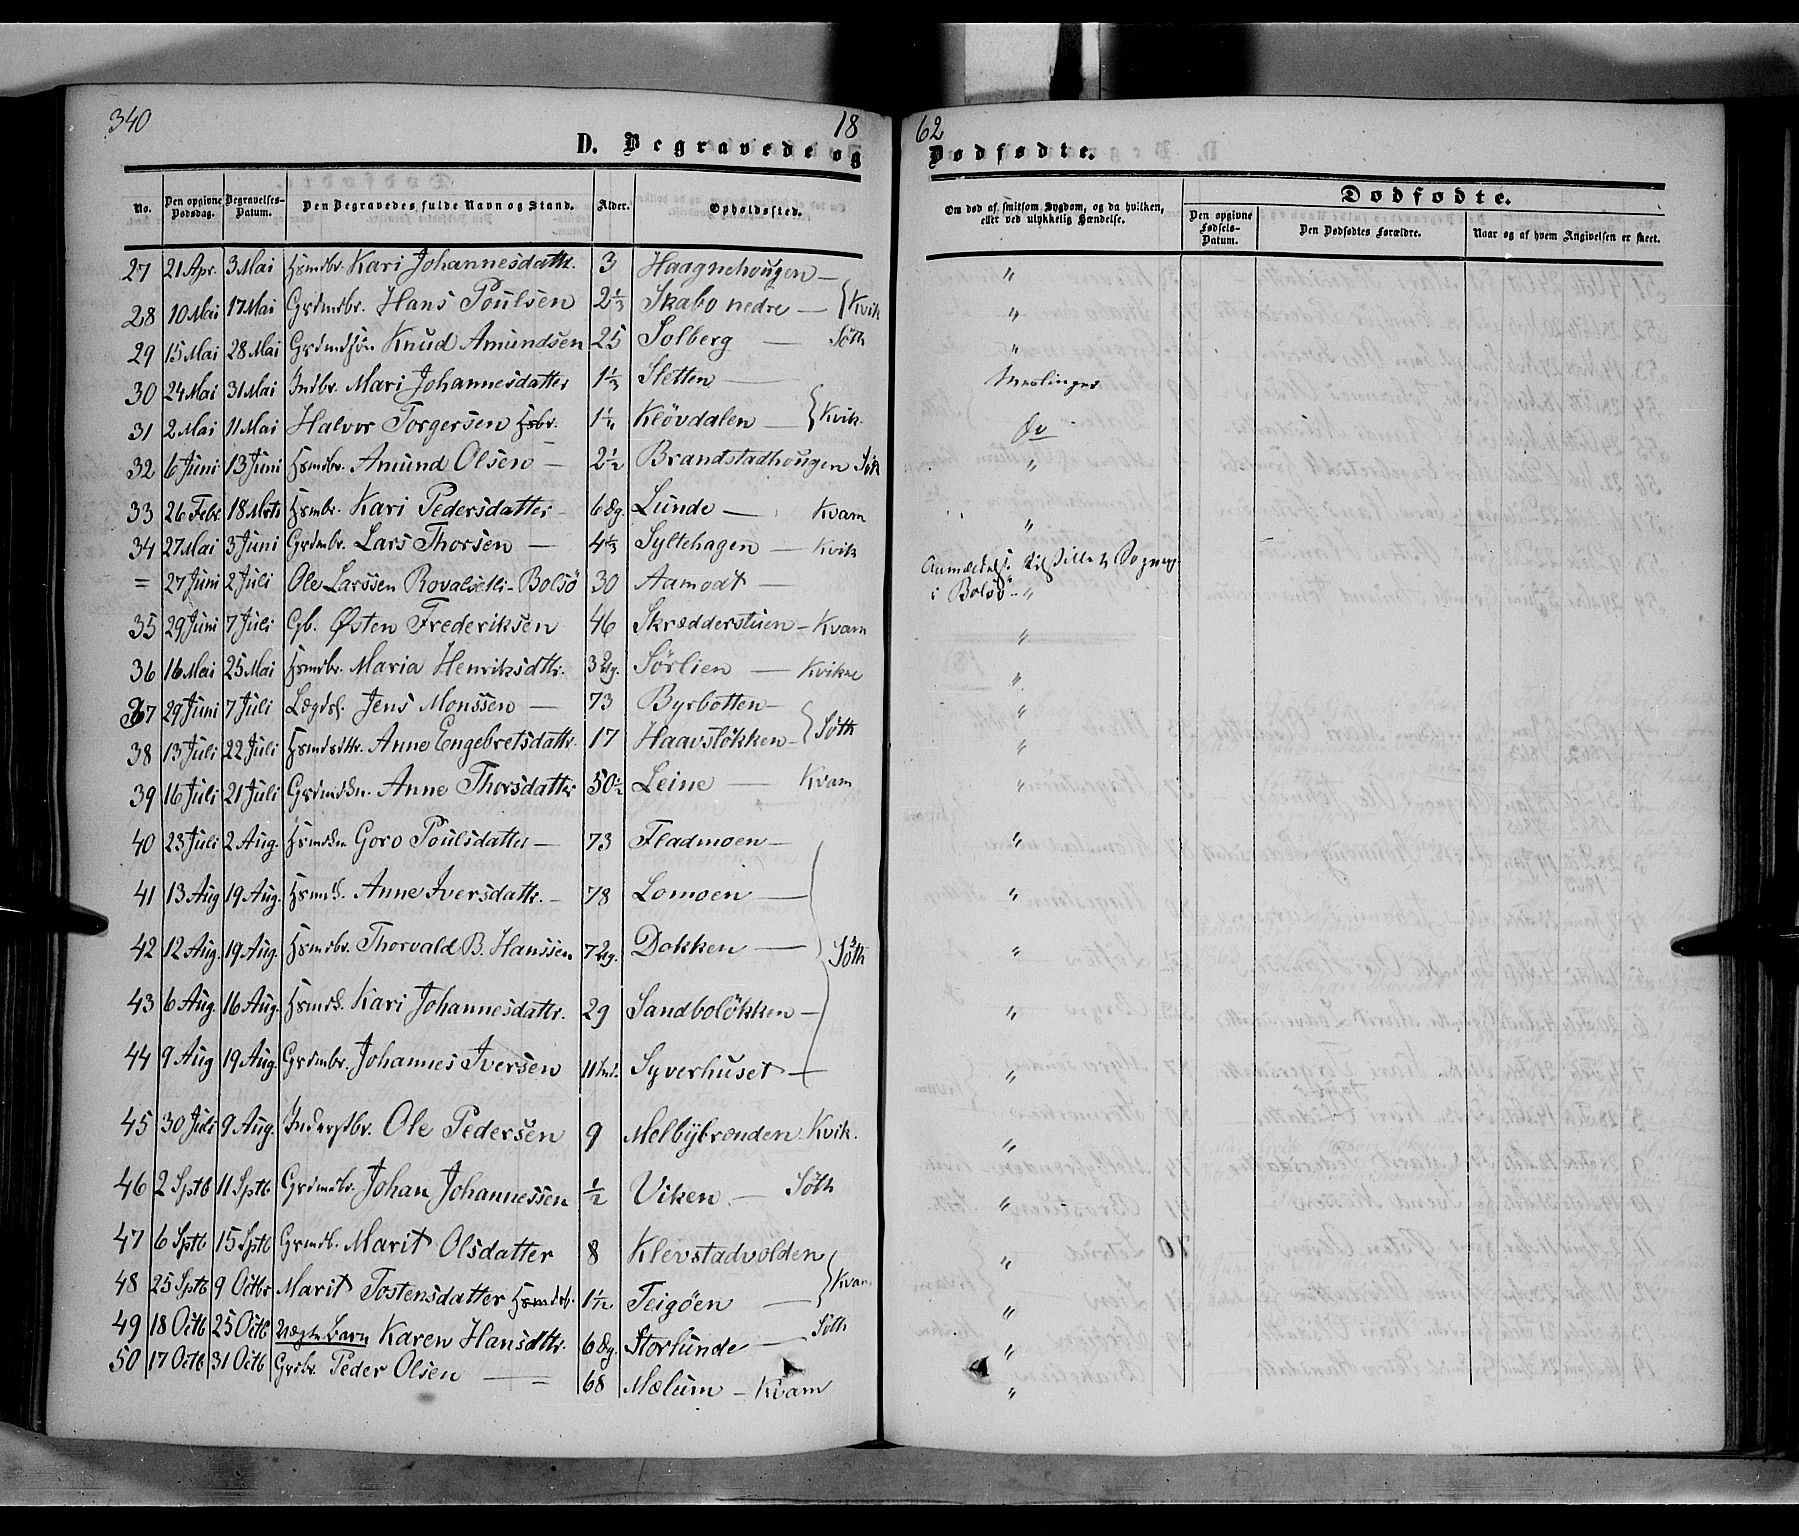 340
18
62
D. Begravede og
Dødfødte.
No. Den opgivne Dødsdag. Begravelses-Datum. Den Begravedes fulde Navn og Stand. Alder. Opholdssted.
Om død af smitsom Sygdom, og da hvilken, eller ved ulykkelig Hændelse.
Dødfødte.
Den opgivne Fødsels-Datum. Den Dødfødtes Forældre. Naar og af hvem Angivelsen er skeet.
27 21 Apr. 3 Mai Hsmdbr. Kari Johannesdattr. 3 Haagnehougen — "
28 10 Mai 17 Mai Grdmdbr. Hans Poulsen 2 1/3 Skabo nedre — Kvik "
29 15 Mai 28 Mai Grdmdsøn. Knud Amundsen 25 Solberg — Söth "
30 24 Mai 31 Mai Indbr. Mari Johannesdatter 1 1/3 Sletten — Meslinger
31 2 Mai 11 Mai Halvor Torgersen Hsbr. Klövdalen Kvik. Do
32 6 Juni 13 Juni Hsmdbr. Amund Olsen — 2 1/2 Brandstadhougen Söth "
33 26 Febr. 18 Mrts Hsmbr. Kari Pedersdatter 6 Dg. Lunde — Kvam "
34 27 Mai 3 Juni Grdmbr. Lars Thorsen — 4 1/3 Syltehagen — Kvik
= 27 Juni 2 Juli Ole Larssen - Bolsö 30 Aamodt —
i Bolsö "
35 29 Juni 7 Juli Gb. Østen Frederiksen 46 Skrædderstuen — Kvam "
36 16 Mai 25 Mai Hsmdbr. Maria Henriksdttr. 3 Ug. Sörlien — Kvikne "
37 29 Juni 7 Juli Lægdsl. Jens Monssen — 73 Byrbotten — "
38 13 Juli 22 Juli Hsmdsdttr. Anne Engebretsdattr. 17 Haavslökken — Söth "
39 16 Juli 21 Juli Grdmdkn. Anne Thorsdatter 50 1/2 Leine — Kvam "
40 23 Juli 2 Aug. Hsmdkn Goro Poulsdatter — 73 Fladmoen — "
41 13 Aug 19 Aug. Hsmdk. Anne Iversdattr. — 78 Lomoen — "
42 12 Aug. 19 Aug. Hsmdbr. Thorvald B. Hanssen 7 Ug. Dokken — Söth "
43 6 Aug. 16 Aug. Hsmdk. Kari Johannesdattr. 29 Sandbolökken — "
44 9 Aug 19 Aug. Grdmbr. Johannes Iversen 11 Md. Syverhuset — "
45 30 Juli 9 Aug. Inderstbr. Ole Pedersen 9 Melbybrenden Kvik. "
46 2 Sptb 11 Sptb Grdmdbr. Johan Johannessen 1/2 Viken — Söth "
47 6 Sptb 15 Sptb Grmdb. Marit Olsdatter 8 Klevstadvolden "
48 25 Sptb 9 Octbr Marit Tostensdatter Hsmdsb. 1 1/12 Teigöen — Kvam "
49 18 Octb 25 Octb Uægte Barn Karen Hansdttr. 6 Dg. Storlunde — Söth "
50 17 Octb 31 Octb Grdbr. Peder Olsen — 68 Mælum — Kvam "